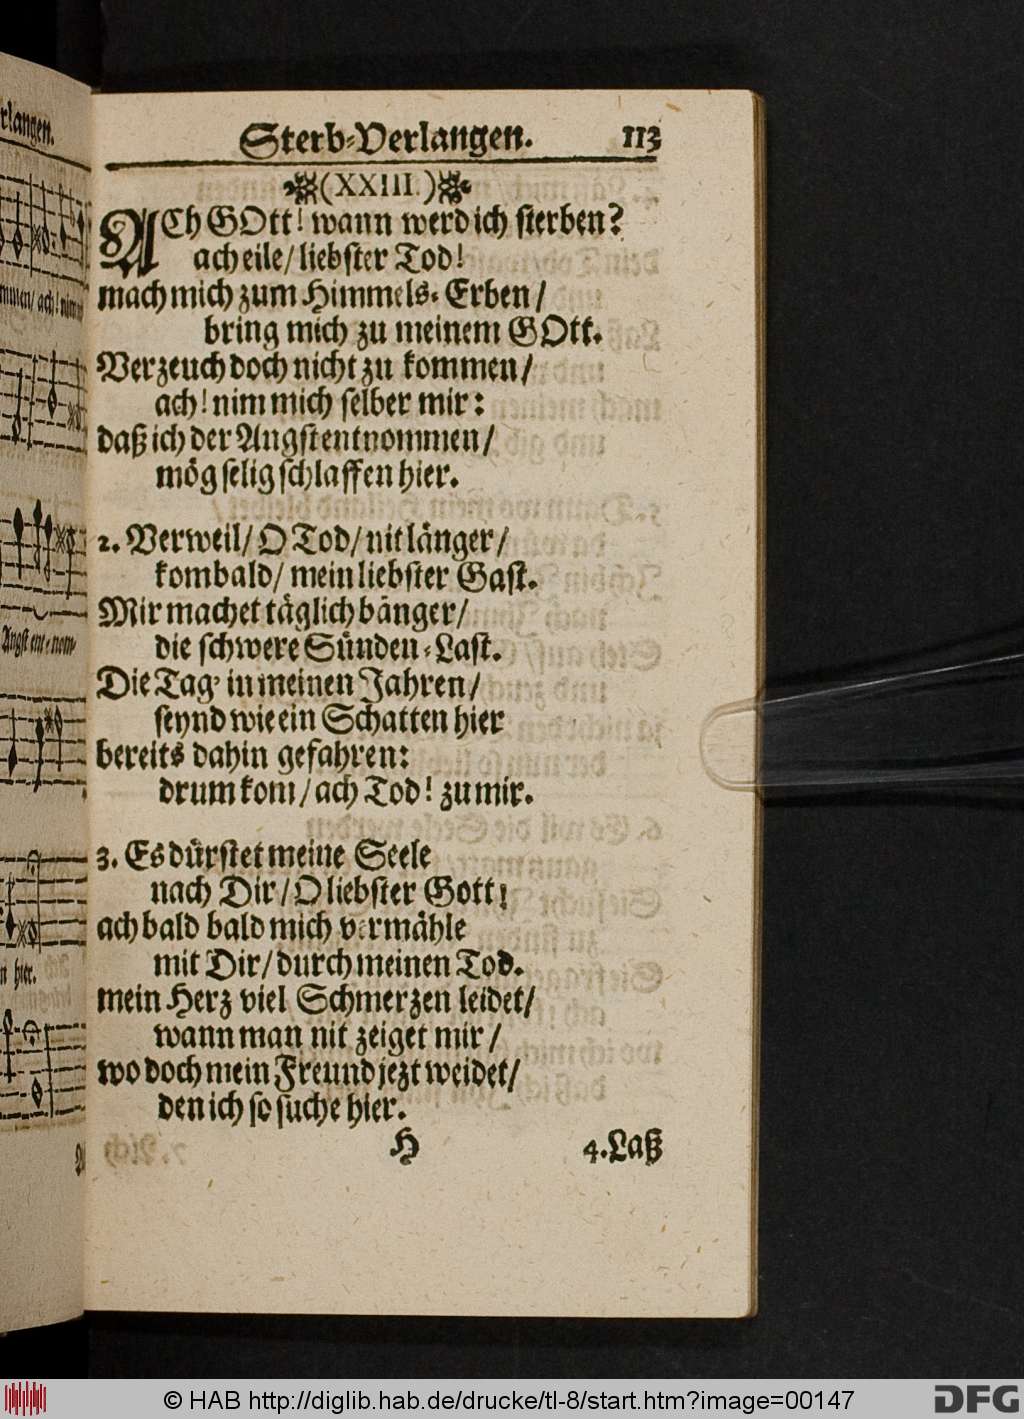 rlangen.
mmen/ ach! nim
Angst ent-nom-
n hier.
Sterb-Verlangen. 113
(XXIII.)
ACh GOtt! wann werd ich sterben?
ach eile/ liebster Tod!
mach mich zum Himmels-Erben/
bring mich zu meinem GOtt.
Verzeuch doch nicht zu kommen/
ach! nim mich selber mir:
daß ich der Angst entnommen/
mög selig schlaffen hier.
2. Verweil/ O Tod/ nit länger/
kom bald/ mein liebster Gast.
Mir machet täglich bänger/
die schwere Sünden-Last.
Die Tag' in meinen Jahren/
seynd wie ein Schatten hier
bereits dahin gefahren:
drum kom/ ach Tod! zu mir.
3. Es dürstet meine Seele
nach Dir/ O liebster Gott!
ach bald bald mich vermähle
mit Dir/ durch meinen Tod.
mein Herz viel Schmerzen leidet/
wann man nit zeiget mir/
wo doch mein Freund jezt weidet/
den ich so suche hier.
H 4. Laß
© HAB http://diglib.hab.de/drucke/tl-8/start.htm?image=00147
DFG